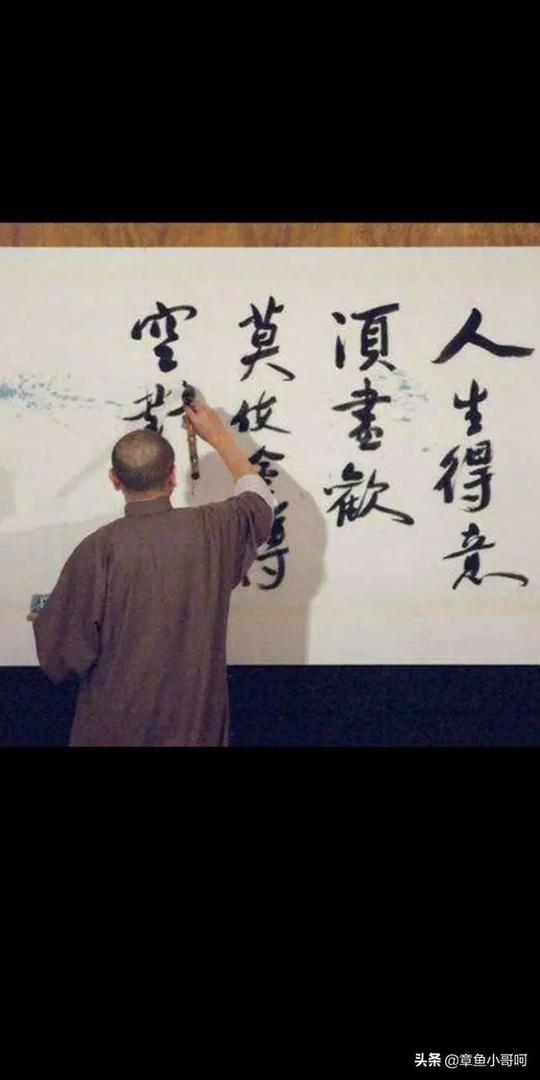 人生得意
須盡歡
莫使金樽
空對
头条 @章鱼小哥呵